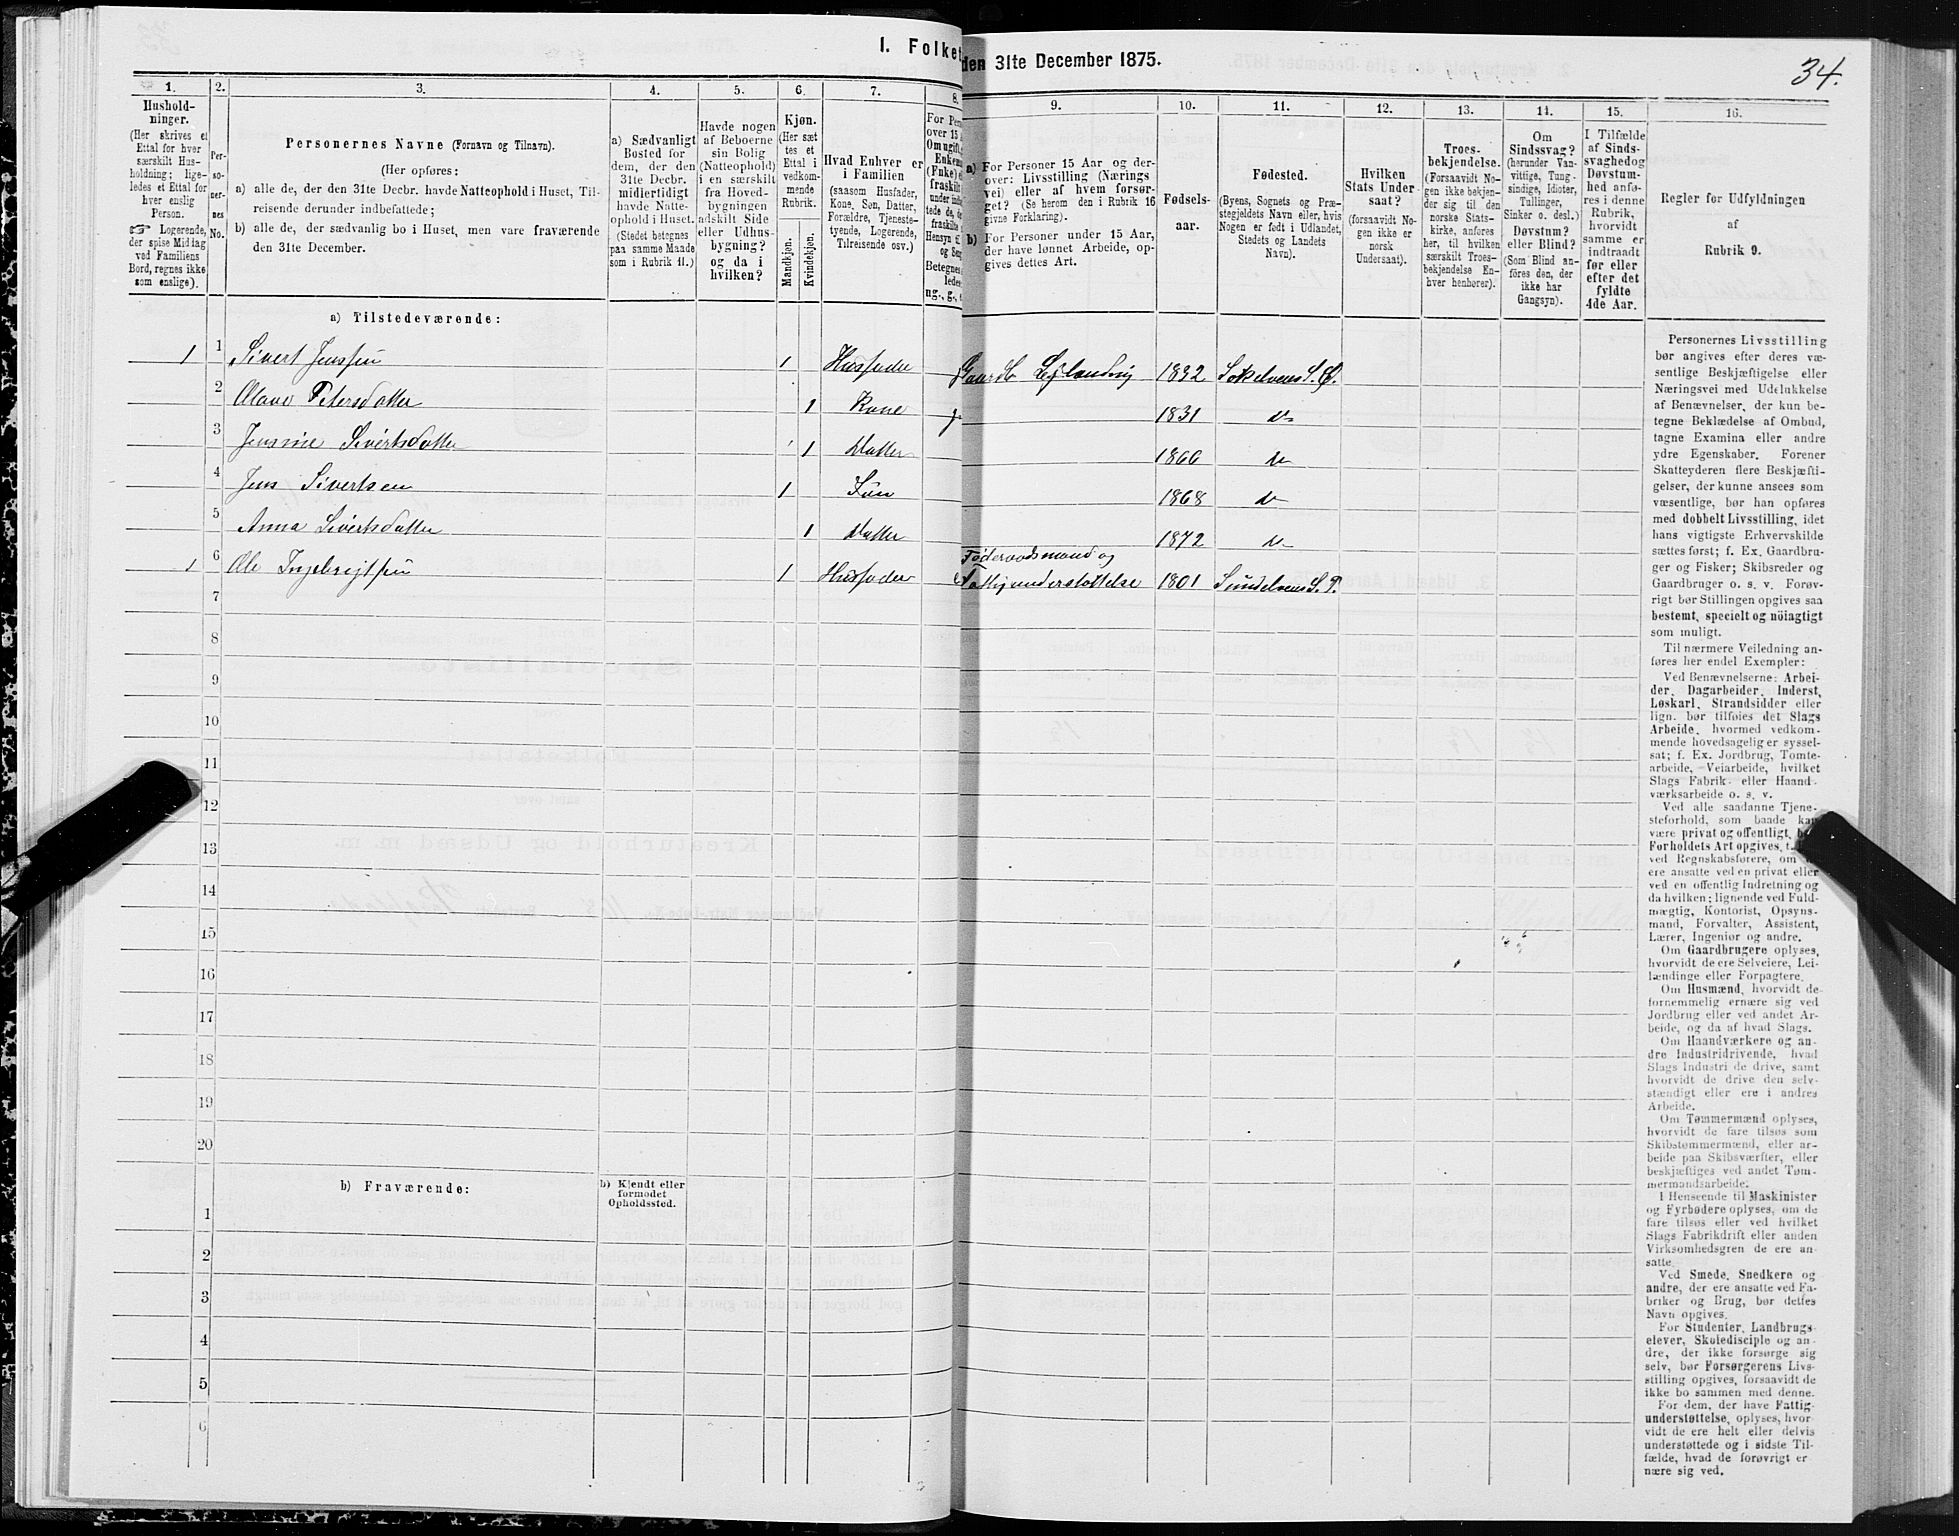 I. Folket
den 31te December 1875.
34.
1.
Hushold-
ninger.
(Her skrives et
Ettal for hver
særskilt Hus-
holdning; lige-
ledes et Ettal for
hver enslig
Person.
Logerende,
der spise Middag
ved Familiens
Bord, regnes ikke
som enslige).
2.
Per-
so-
ner-
nes
No.
3.
Personernes Navne (Fornavn og Tilnavn).
(Her opføres:
a) alle de, der den 31te Decbr. havde Natteophold i Huset, Til-
reisende derunder indbefattede;
b) alle de, der sædvanlig bo i Huset, men vare fraværende
den 31te December.
4.
a) Sædvanligt
Bosted for
dem, der den
31te Decbr.
midlertidigt
havde Natte-
ophold i Huset.
(Stedet betegnes
paa samme Maade
som i Rubrik 11.)
5.
Havde nogen
af Beboerne
sin Bolig
(Natteophold)
i en særskilt
fra Hoved-
bygningen
adskilt Side
eller Udhus-
bygning?
og da i
hvilken?
6.
Kjøn.
(Her sæt
tes et
Ettal i
vedkom-
mende
Rubrik.
Mandkjøn.
Kvindekjøn.
7.
Hvad Enhver er
i Familien
(saasom Husfader,
Kone, Søn, Datter,
Forældre, Tjeneste-
tyende, Logerende,
Tilreisende osv.)
8.
For Pers
over 15 A
Om ugift,
Enkema
(Enke) el
fraskilt
9.
a) For Personer 15 Aar og der-
over: Livsstilling (Nærings
vei) eller af hvem forsør-
get? (Se herom den i Rubrik 16
givne Forklaring).
b) For Personer under 15 Aar,
der have lønnet Arbeide, op-
gives dettes Art.
10.
Fødsels-
aar.
11.
Fødested.
(Byens, Sognets og Præ-
stegjeldets Navn eller, hvis
Nogen er født i Udlandet,
Stedets og Landets
Navn).
12.
Hvilken
Stats Under-
saat?
(forsaavidt No-
gen ikke er
norsk
Undersaat).
13.
Troes-
bekjendelse.
(Forsaavidt No-
gen ikke bekjen-
der sig til den
norske Stats-
kirke, anføres
her, til hvilken
særskilt Troes-
bekjendelse En-
hver henhører).
14.
Om
Sindssvag?
(herunder Van-
vittige, Tung-
sindige, Idioter,
Tullinger,
Sinker o. desl.)
Døvstum?
eller Blind?
(Som Blind an-
føres den, der
ikke har
Gangsyn).
15.
I Tilfælde
af Sinds-
svaghed og
Døvstum-
hed anfø-
res i denne
Rubrik,
hvorvidt
samme er
indtraadt
før eller
efter det
fyldte
4de Aar.
16.
Regler for Udfyldningen
af
Rubrik 9.
a) Tilstedeværende:
1 1 Sivert Jenssen 1 Husfader Gaardb Leilænding 1832 Sokelvens S. P.
2 Olave Petersdatter 1 Kone g 1831 do
3 Jensine Sivertsdatter 1 Datter 1866 do
4 Jens Sivertsen 1 Søn 1868 do
5 Anna Sivertsdatter 1 Datter 1872 do
1 6 Ole Ingebrigtsen 1 Husfader Føderaadsmand og
Fattigunderstøttelse 1801 Sundelvens S. P.
7
8
9
10
11
12
13
14
15
16
17
18
19
20
b) Fraværende:
b) Kjendt eller
formodet
Opholdssted.
1
2
3
4
5
6
Personernes Livsstilling
bør angives efter deres væ-
sentlige Beskjæftigelse eller
Næringsvei med Udelukkelse
af Benævnelser, der kun be-
tegne Beklædelse af Ombud,
tagne Examina eller andre
ydre Egenskaber. Forener
Skatteyderen flere Beskjæfti-
gelser, der kunne ansees som
væsentlige, bør han opføres
med dobbelt Livsstilling, idet
hans vigtigste Erhvervskilde
sættes først; f. Ex. Gaardbru-
ger og Fisker; Skibsreder og
Gaardbruger o. s. v. Forøv-
rigt bør Stillingen opgives saa
bestemt, specielt og nöiagtigt
som muligt.
Til nærmere Veiledning an-
føres her endel Exempler:
Ved Benævnelserne: Arbei-
der, Dagarbeider, Inderst,
Løskarl, Strandsidder eller
lign. bør tilføies det Slags
Arbeide, hvormed vedkom-
mende hovedsagelig er syssel-
sat; f. Ex. Jordbrug, Tomte-
arbeide, Veiarbeide, hvilket
Slags Fabrik- eller Haand-
værksarbeide o. s. v.
Ved alle saadanne Tjene-
steforhold, som baade kan
være privat og offentligt, bør
Forholdets Art opgives, t.
ved Regnskabsførere, om
ere ansatte ved en privat eller
ved en offentlig Indretning og
da hvilken; lignende ved Fuld-
mægtig, Kontorist, Opsyns-
mand, Forvalter, Assistent,
Lærer, Ingeniør og andre.
Om Gaardbrugere oplyses,
hvorvidt de ere Selveiere, Lei-
lændinge eller Forpagtere.
Om Husmænd, hvorvidt de
fornemmelig ernære sig ved
Jordbrug eller ved andet Ar-
beide, og da af hvad Slags.
Om Haandværkere og an-
dre Industridrivende, hvad
Slags Industri de drive, samt
hvorvidt de drive den selv-
stændigt eller ere i andres
Arbeide.
Om Tømmermænd oplyses,
hvorvidt de fare tilsøs som
Skibstømmermænd, eller ar-
beide paa Skibsværfter, eller
beskjæftiges ved andet Tøm-
mermandsarbeide.
I Henseende til Maskinister
og Fyrbødere oplyses, om de
fare tilsøs eller ved hvilket
Slags Fabrikdrift eller anden
Virksomhedsgren de ere an-
satte.
Ved Smede, Snedkere og
andre, der ere ansatte ved Fa-
briker og Brug, bør dettes
Navn opgives.
For Studenter, Landbrugs-
elever, Skoledisciple og an-
dre, der ikke forsørge sig
selv, bør Forsørgerens Livs-
stilling opgives, forsaavidt de
ikke bo sammen med denne.
For dem, der have Fattig-
understøttelse, oplyses, hvor-
vidt de ere helt eller delvis
understøttede og i sidste Til-
fælde, hvad de forøvrigt er
nære sig ved.